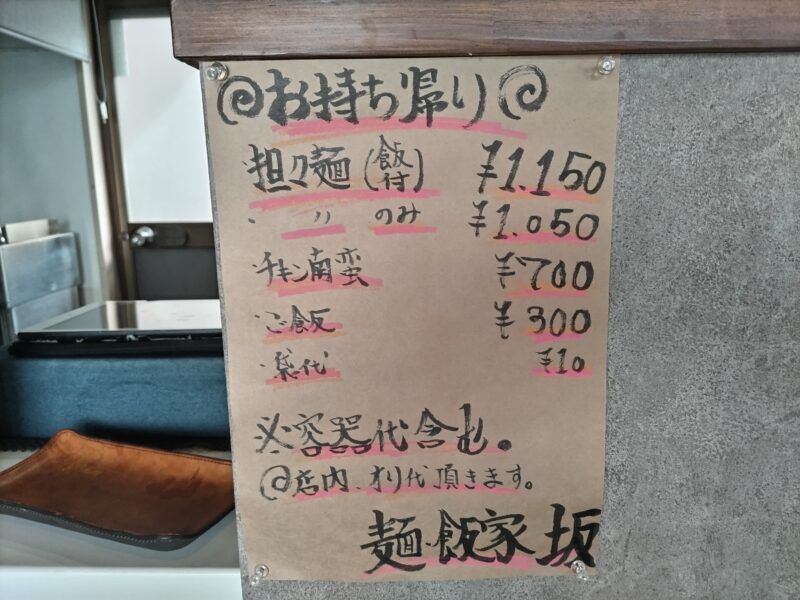 お持ち帰り
担々麺(飯付) ¥1.150
〃 のみ ¥1.050
チキン南蛮 ¥700
ご飯 ¥300
袋代 ¥10
※容器代含む。
@店内、オリ代頂きます。
麺・飯家 坂